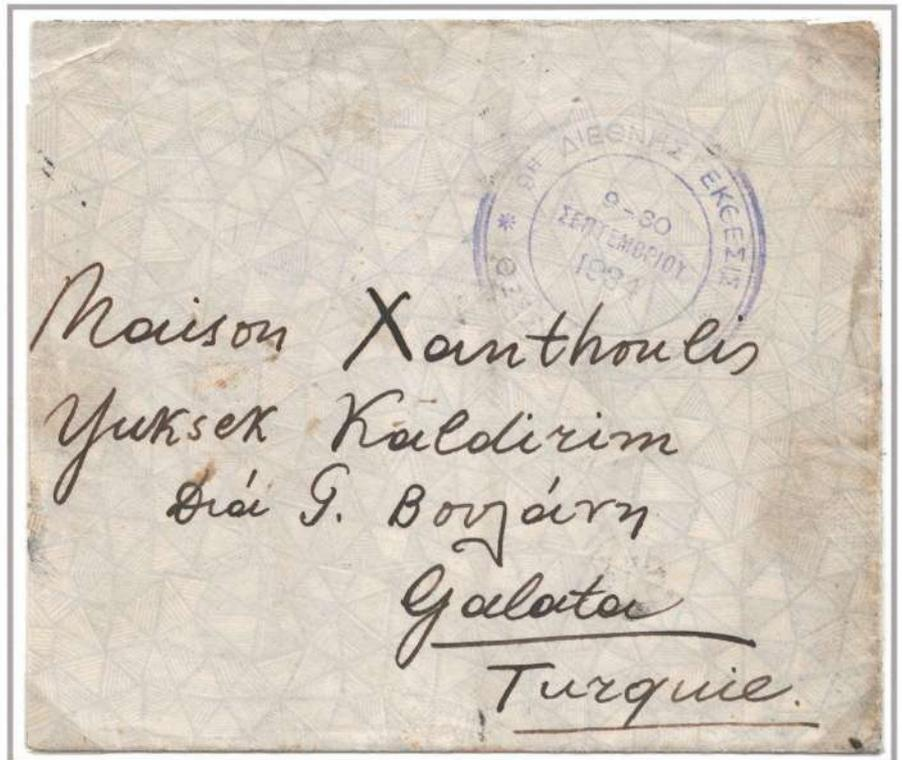 9Η ΔΙΕΘΝΗΣ ΕΚΘΕΣΙΣ
9-30
ΣΕΠΤΕΜΒΡΙΟΥ
1934
Maison Xanthoulis
Yuksek Kaldirim
Διά G. Βουλάνη
Galata
Turquie.